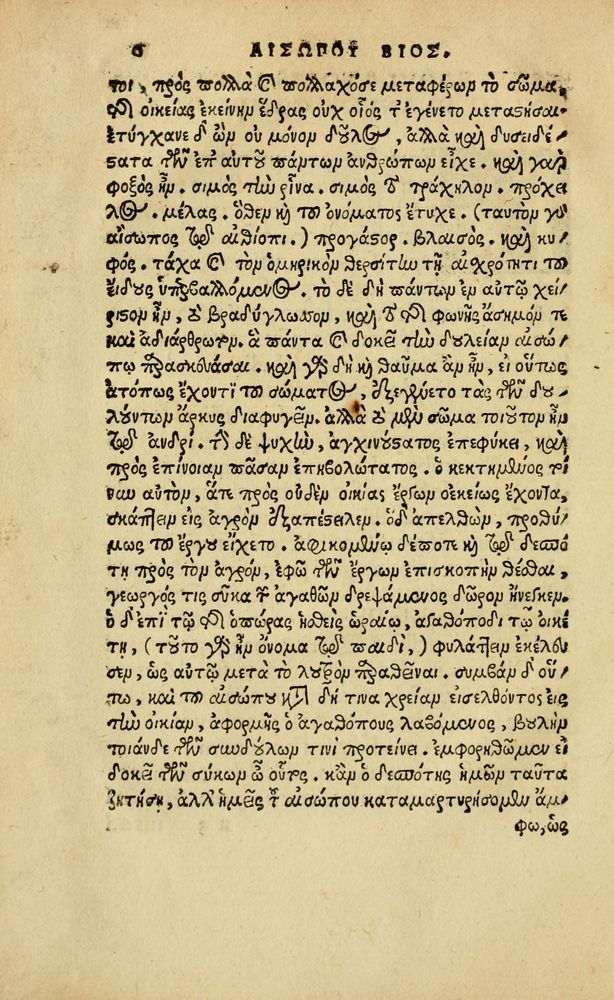 6 ΑΙΣΩΠΟΥ ΒΙΟΣ.
τοι, πρὸς πολλὰ καὶ πολλαχόσε μεταφέρων τὸ σῶμα,
τῆς οἰκείας ἐκείνην ἕδρας οὐχ οἷός τ' ἐγένετο μεταστῆσαι.
ἐτύγχανε δ' ὢν οὐ μόνον δοῦλος, ἀλλὰ καὶ δυσειδέ-
στατα τῶν ἐπ' αὐτοῦ πάντων ἀνθρώπων εἶχε. καὶ γὰρ
φοξὸς ἦν. σιμὸς τὴν ῥῖνα. σιμὸς τὸν τράχηλον. πρόχει
λος. μέλας. ὅθεν καὶ τοῦ ὀνόματος ἔτυχε. (ταυτὸν γὰρ
αἴσωπος τῷ αἰθίοπι.) προγάστορ. βλαισός. καὶ κυ-
φός. τάχα καὶ τὸν ὁμηρικὸν θερσίτην τῇ αἰσχρότητι τοῦ
εἴδους ὑπερβαλλόμενος. τὸ δὲ δὴ πάντων ἐν αὐτῷ χεί-
ριστον ἦν, τὸ βραδύγλωσσον, καὶ τὸ τῆς φωνῆς ἄσημόν τε
καὶ ἀδιάρθρωτον. ἃ πάντα καὶ δοκεῖ τὴν δουλείαν αἰσώ
πῳ παρασκευάσαι. καὶ γὰρ δὴ καὶ θαῦμα ἂν ἦν, εἰ οὕτως
ἀτόπως ἔχοντι τοῦ σώματος, ἐξεγένετο τὰς τῶν δου-
λούντων ἄρκυς διαφυγεῖν. ἀλλὰ τὸ μὲν σῶμα τοιοῦτον ἦν
τῷ ἀνδρί. τὴν δὲ ψυχὴν, ἀγχινούστατος ἐπεφύκει, καὶ
πρὸς ἐπίνοιαν πᾶσαν ἐπηβολώτατος. ὁ κεκτημένος τοί
νυν αὐτὸν, ἅτε πρὸς οὐδὲν οἰκίας ἔργον οἰκείως ἔχοντα,
σκάπτειν εἰς ἀγρὸν ἐξαπέστειλεν. ὁ δ' ἀπελθὼν, προθύ-
μως τοῦ ἔργου εἴχετο. ἀφικομένῳ δέ ποτε καὶ τῷ δεσπό
τῃ πρὸς τὸν ἀγρὸν, ἐφ' ᾧ τῶν ἔργων ἐπισκοπὴν θέσθαι,
γεωργός τις σῦκα τῶν ἀγαθῶν δρεψάμενος δῶρον ἤνεγκεν.
ὁ δ' ἐπὶ τῷ τῆς ὀπώρας ἡσθεὶς ὡραίῳ, ἀγαθόποδι τῷ οἰκέ
τῃ, (τοῦτο γὰρ ἦν ὄνομα τῷ παιδὶ,) φυλάττειν ἐκέλευ-
σεν, ὡς αὐτῷ μετὰ τὸ λουτρὸν παραθεῖναι. συμβὰν δ' οὕ-
τω, καὶ τοῦ αἰσώπου κατὰ δή τινα χρείαν εἰσελθόντος εἰς
τὴν οἰκίαν, ἀφορμῆς ὁ ἀγαθόπους λαβόμενος, βουλὴν
τοιάνδε τῶν συνδούλων τινὶ προτείνει. ἐμφορηθῶμεν εἰ
δοκεῖ τῶν σύκων ὦ οὗτος. κἂν ὁ δεσπότης ἡμῶν ταῦτα
ζητήσῃ, ἀλλ' ἡμεῖς τοῦ αἰσώπου καταμαρτυρήσομεν ἄμ-
φω, ὡς